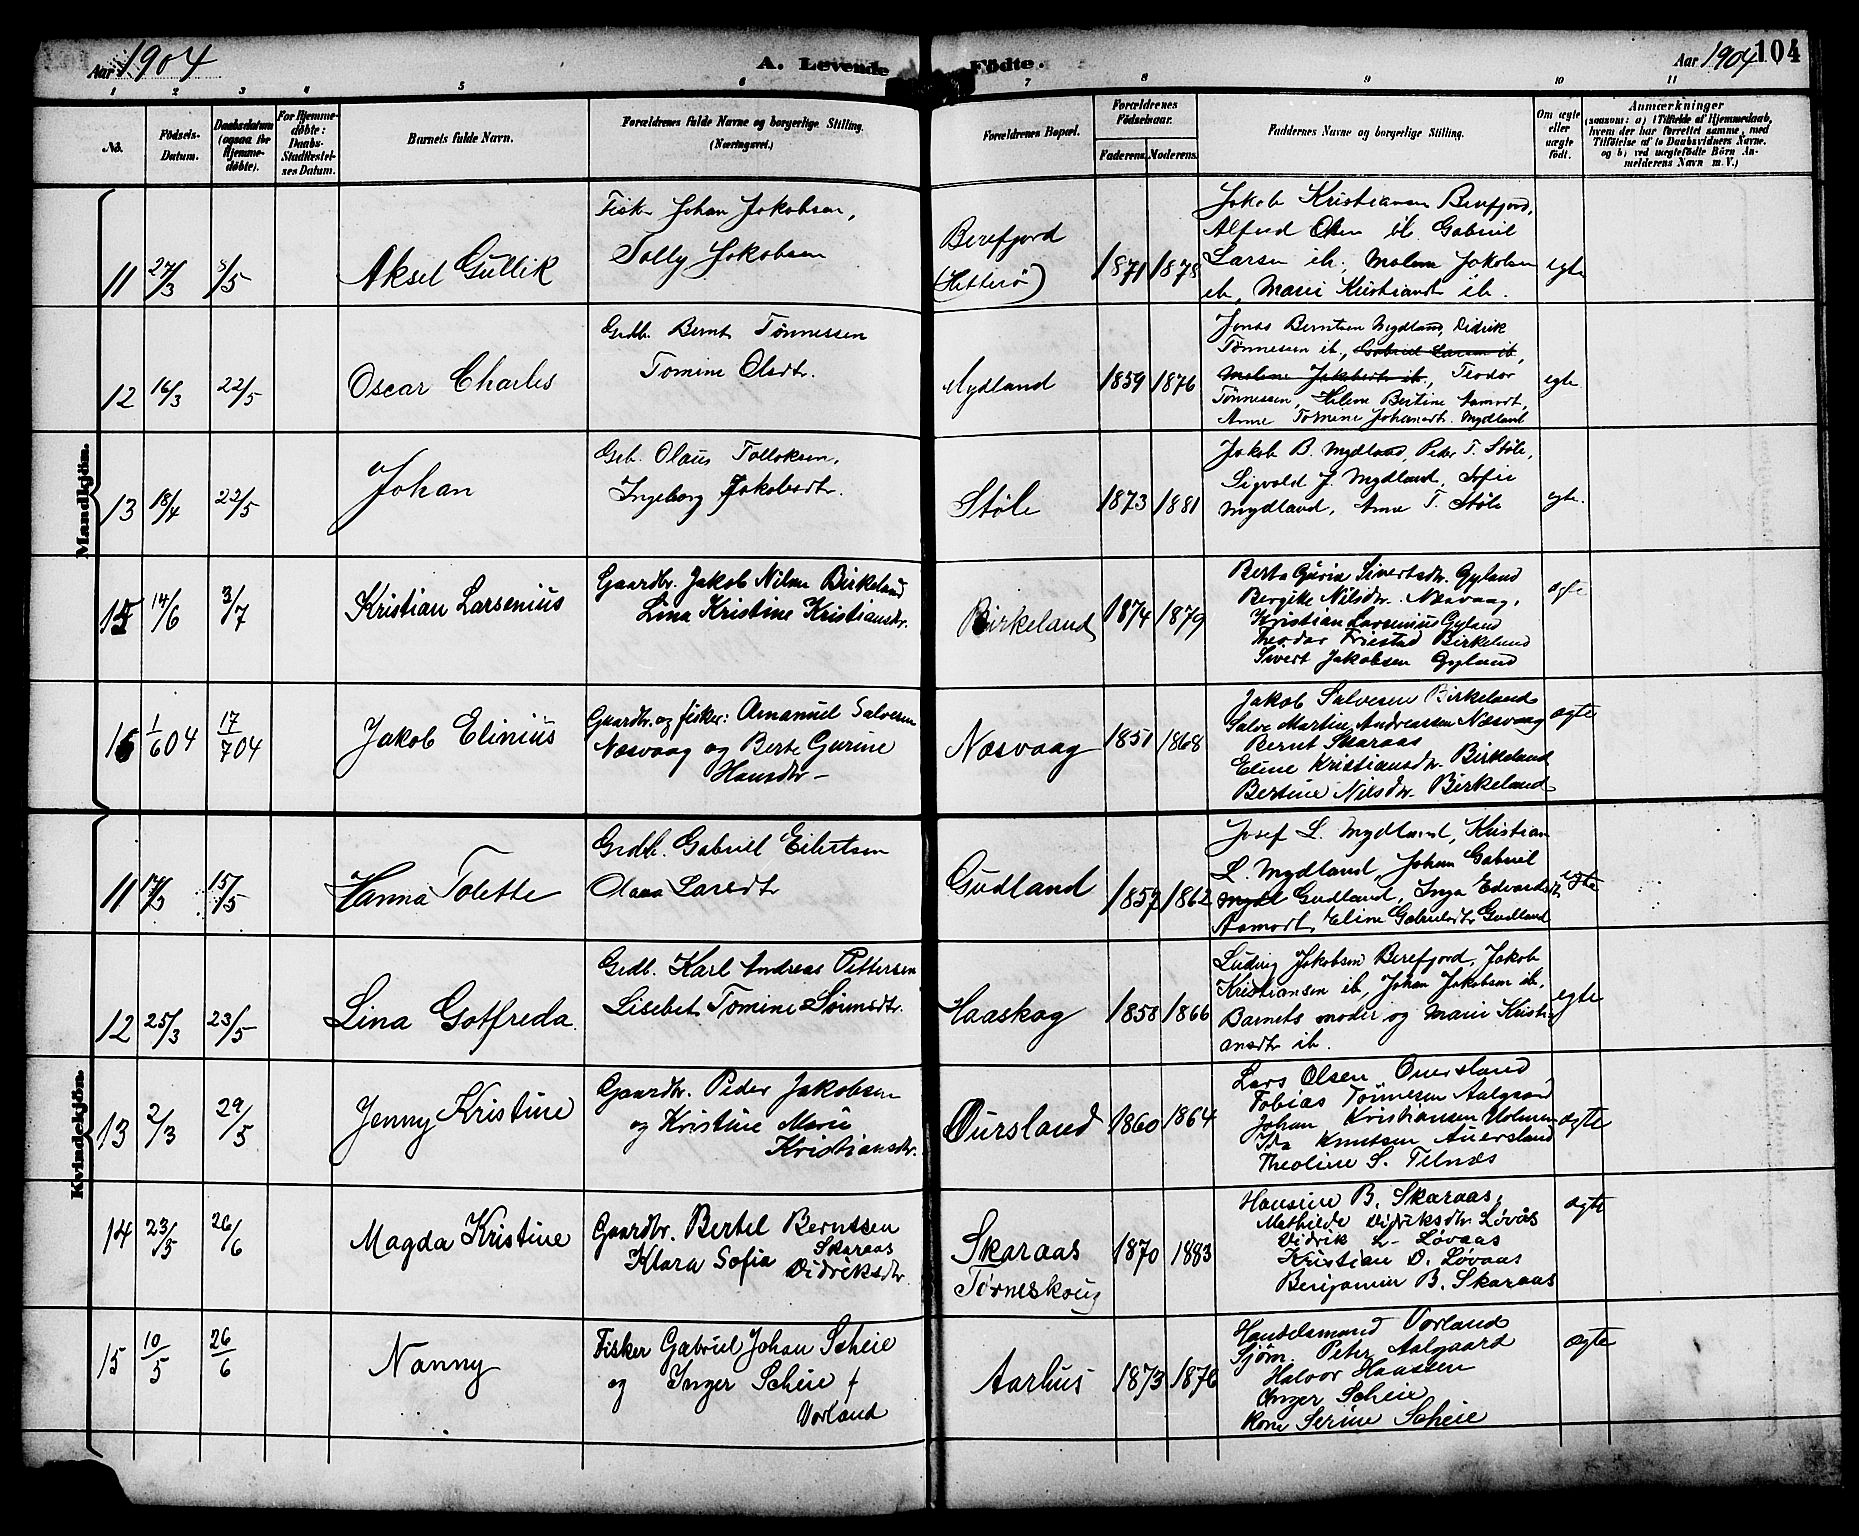 Aar 1904
A. Levende Fødte.
Aar 1904
104
1 2 3 4 5 6 7 8 9 10 11
No.
Fødsels-Datum.
Daabsdatum (ogsaa for Hjemmedøbte).
For Hjemmedøbte: Daabs-Stadfæstelses Datum.
Barnets fulde Navn.
Forældrenes fulde Navne og borgerlige Stilling. (Næringsvei.)
Forældrenes Bopæl.
Forældrenes Fødselsaar.
Faderens. Moderens.
Faddernes Navne og borgerlige Stilling.
Om ægte eller uægte født.
Anmærkninger
Mandkjøn.
11 27/3 8/5 Aksel Gullik
Fisk. Johan Jakobsen,
Tolly Jakobsen
Berefjord
(Hitterø)
1871 1878
Jakob Kristiansen Berefjord,
Alfred Olsen ib. Gabriel
Larsen ib., Malene Jakobsen
ib, Marie Kristiansdt ib.
egte
12 16/3 22/5 Oscar Charles
Grdb. Bernt Tønnessen
Tomine Olsdtr.
Mydland
1859 1876
Jonas Berntsen Mydland, Didrik
Tønnesen ib., Gabriel Larsen ib,
Malene Jakobsdt ib., Teodor
Tønnessen, Helene Bertine Aamodt,
Anne Tomine Johansdtr. Mydland
egte.
13 18/4 22/5 Johan
Grb. Olaus Tolloksen,
Ingeborg Jakobsdtr.
Støle
1873 1881
Jakob B. Mydland, Peder T. Støle,
Sigvald J. Mydland, Sofie
Mydland, Anne T. Støle
egte.
15 14/6 3/7 Kristian Larsenius
Gaardbr. Jakob Nilsen Birkeland
Lina Kristine Kristiansdr.
Birkeland
1874 1879
Berta Gurie Sivertsdr. Gyland
Bergite Nilsdr. Næsvaag,
Kristian Larsenius Gyland
Theodor Friestad Birkeland
Sivert Jakobsen Gyland
ægte
16 1/6 04 17/7 04 Jakob Elinius
Gaardbr. og fisker: Amanuel Salvesen
Næsvaag og Berte Gurine
Hansdtr –
Næsvaag
1851 1868
Jakob Salvesen Birkeland
Salve Martin Andreassen Næsvaag
Bernt Skaraas
Eline Kristiansdr. Birkeland
Bertine Nilsdr. Birkeland
ægte
Kvindekjøn.
11 15/5 Hanna Tolette
Grdb. Gabriel Eilertsen
Olava Larsdtr
Gudland
1857 1862
Josef L. Mydland, Kristian
L. Mydland, Johan Gabriel
Gudland, Inga Edvardsdt.
Aamodt, Eline Gabrielsdtr Gudland
egte
12 25/3 23/5 Lina Gotfreda.
Grdb. Karl Andreas Pettersen
Lisebet Tomine Sørensdtr.
Haaskog
1858 1866
Ludvig Jakobsen Berefjord, Jakob
Kristiansen ib, Johan Jakobsen ib.
Barnets moder og Marie Kristi-
ansdtr ib.
egte
13 2/3 29/5 Jenny Kristine
Gaardbr. Peder Jakobsen
og Kristine Marie
Kristiansdr.
Øursland
1860 1864
Lars Olsen Øuersland
Tobias Tønnesen Aalgaard
Johan Kristiansen Holmen
Ida Knutsen Auersland
Theoline S. Telnæs
ægte
14 23/5 26/6 Magda Kristine
Gaardbr. Bertel Berntsen
Skaraas
Klara Sofia Didriksdtr.
Skaraas
Tørneskoug
1870 1883
Hansine B. Skaraas,
Mathilde Didriksdtr Løvås
Didrik L. Løvaas
Kristian D. Løvaas
Benjamin B. Skaraas
ægte
15 10/5 26/6 Nanny
Fisker Gabriel Johan Scheie
og Inger Scheie f
Vorland
Aarhus
1873 1876
Handelsmand Vorland
Sjøm. Peter Aalgaard
Halvor Haassen
Inger Scheie
Kone Serine Scheie
ægte